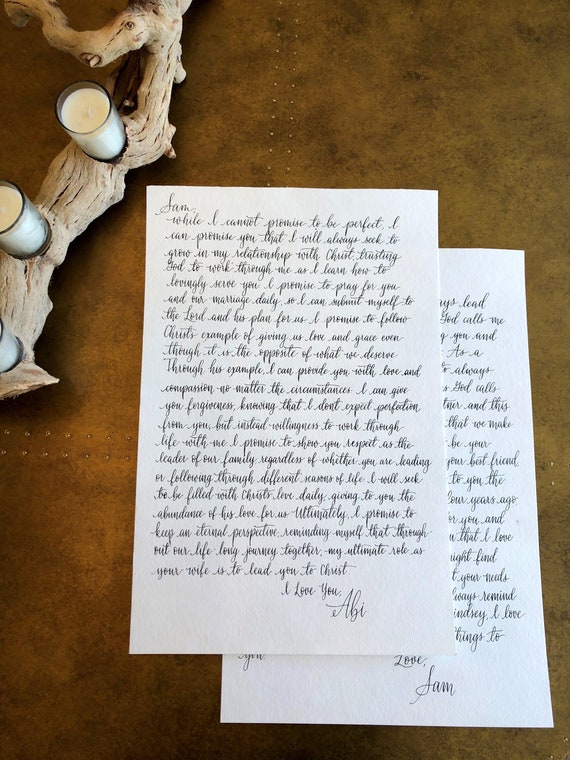 Sam,
while I cannot promise to be perfect, I
can promise you that I will always seek to
grow in my relationship with Christ, trusting
God to work through me as I learn how to
lovingly serve you I promise to pray for you
and our marriage daily, so I can submit myself to
the Lord and his plan for us I promise to follow
Christ's example of giving us love and grace even
though it is the opposite of what we deserve
Through his example I can provide you with love and
compassion no matter the circumstances I can give
you forgiveness, knowing that I dont expect perfection
from you, but instead willingness to work through
life with me I promise to show you respect as the
leader of our family regardless of whether you are leading
or following through different seasons of life I will seek
to be filled with Christ's love daily, giving to you the
abundance of his love for us Ultimately, I promise to
keep an eternal perspective, reminding myself that through
out our life long journey together, my ultimate role as
your wife is to lead you to Christ
I Love You,
Abi
ays lead
God calls me
g you and
As a
to always
s God calls
tner and this
that we make
t be your
your best friend,
to you the
four years ago
or you and
u that I love
might find
t your needs
always remind
indsey, I love
things to
you
Love,
Sam